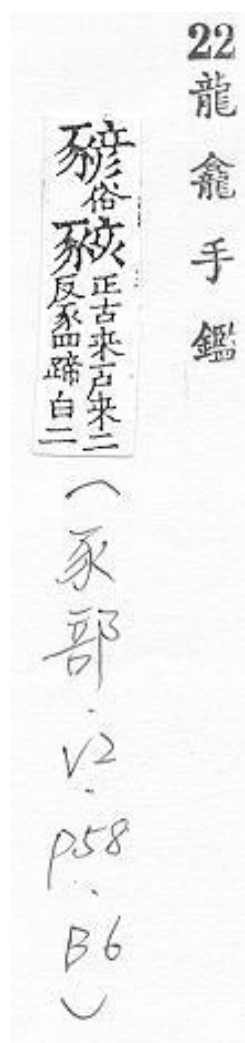 22龍龕手鑑
俗豥正古来户来二
反豕四蹄白二
(豕部.V2.p58.B6)